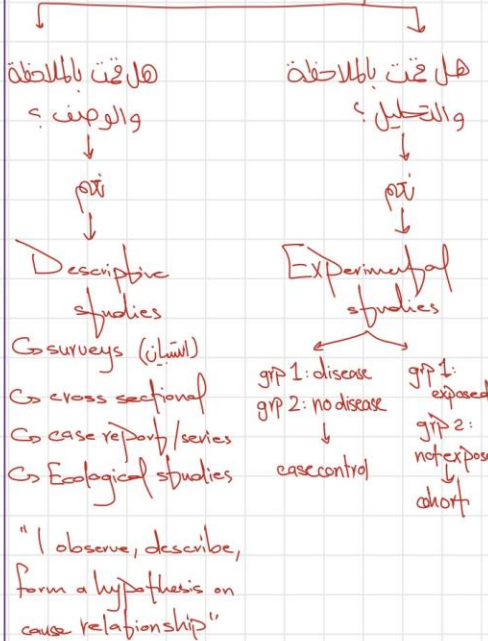 هل قمت بالملاحظة
والوصف؟
نعم
Descriptive
studies
surveys (استبيان)
cross sectional
case report/series
Ecological studies
"I observe, describe,
form a hypothesis on
cause relationship"
هل قمت بالملاحظة
والتحليل؟
نعم
Experimental
studies
grp 1: disease
grp 2: no disease
case control
grp 1:
exposed
grp 2:
not expose
cohort